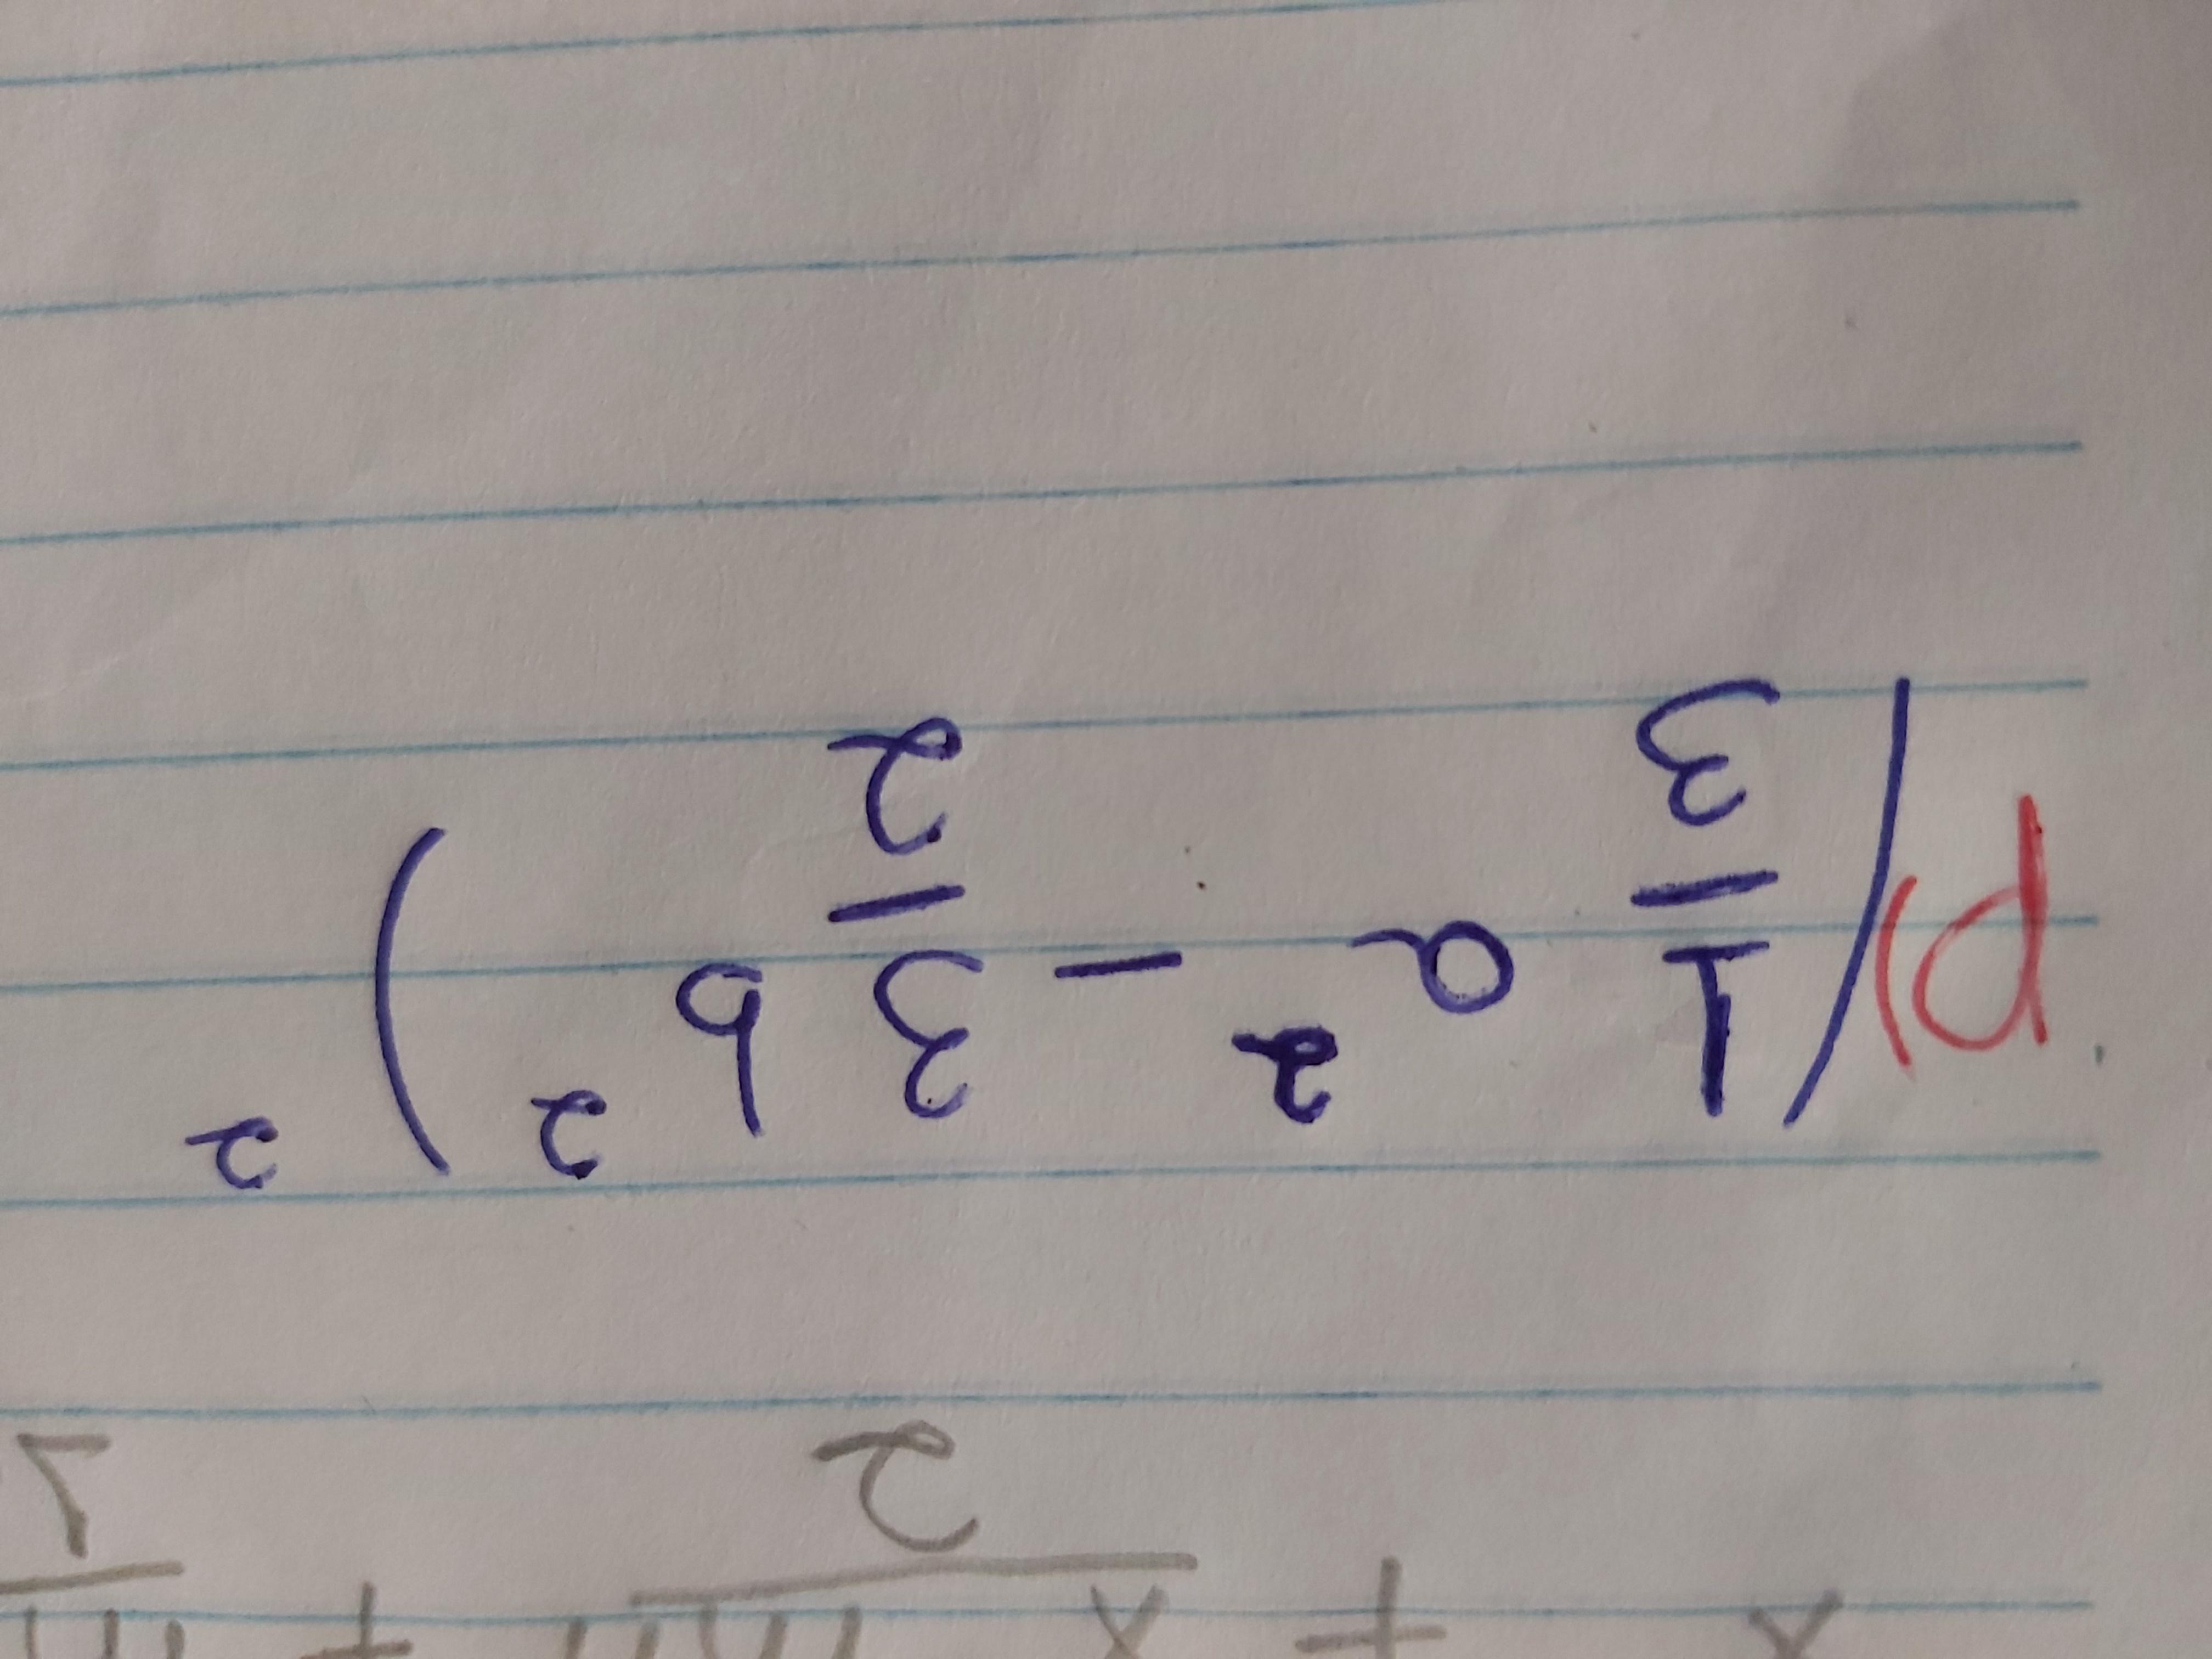 d) (1/3 a² - 3/2 b²)²